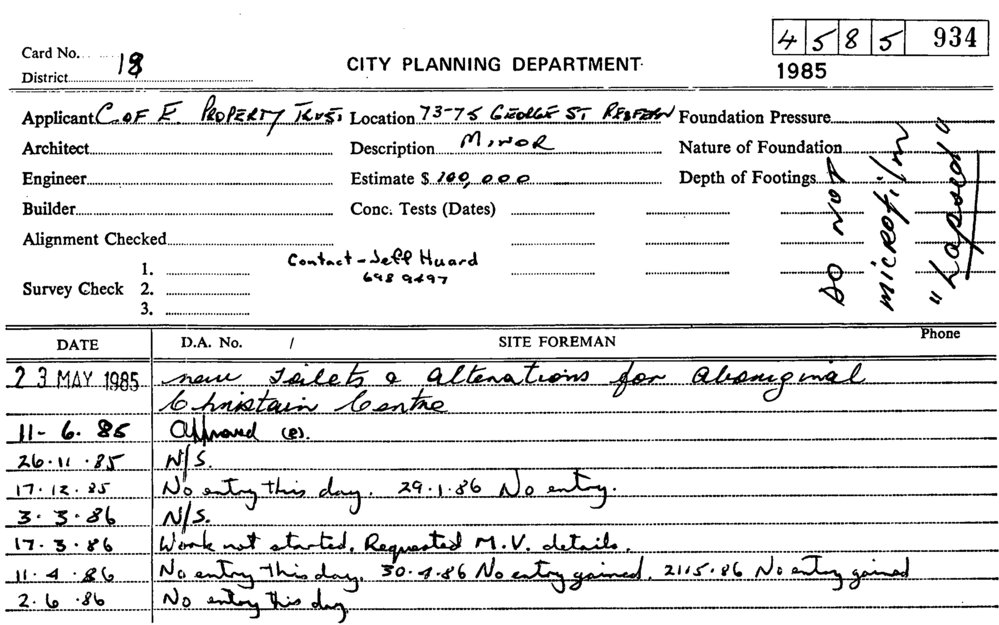 4 5 8 5 934
Card No. 18
CITY PLANNING DEPARTMENT
1985
District
Applicant C of E. PROPERTY TRUST Location 73-75 GEORGE ST REDFERN Foundation Pressure
Architect Description MINOR Nature of Foundation
Engineer Estimate $ 100,000 Depth of Footings
Builder Conc. Tests (Dates)
Alignment Checked
Contact - Jeff Huard
698 9497
Survey Check 1.
2.
3.
DO NOT
MICROFILM
"Lapsed"
DATE D.A. No. / SITE FOREMAN Phone
23 MAY 1985 new Toilets & alterations for aboriginal
Christain Centre
11-6.85 Approved (e).
26.11.85 N/S.
17.12.85 No entry this day. 29.1.86 No entry.
3.3.86 N/S.
17.3.86 Work not started. Requested M.V. details.
11.4.86 No entry this day. 30.4.86 No entry gained. 2115.86 No entry gained
2.6.86 No entry this day.